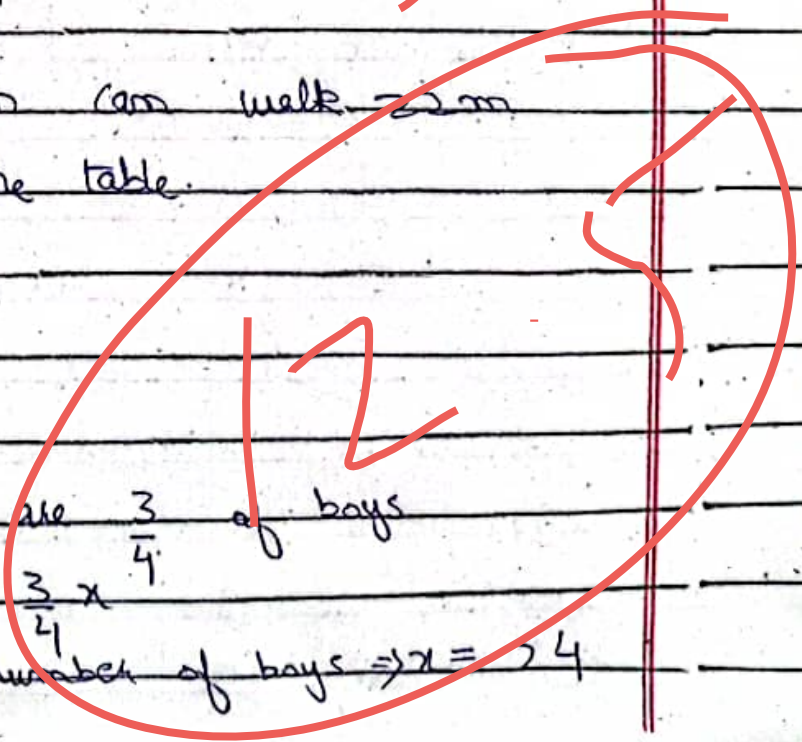 can walk = 2m
table.
12
are 3/4 of boys
3/4 x
number of boys ⇒ x = 24